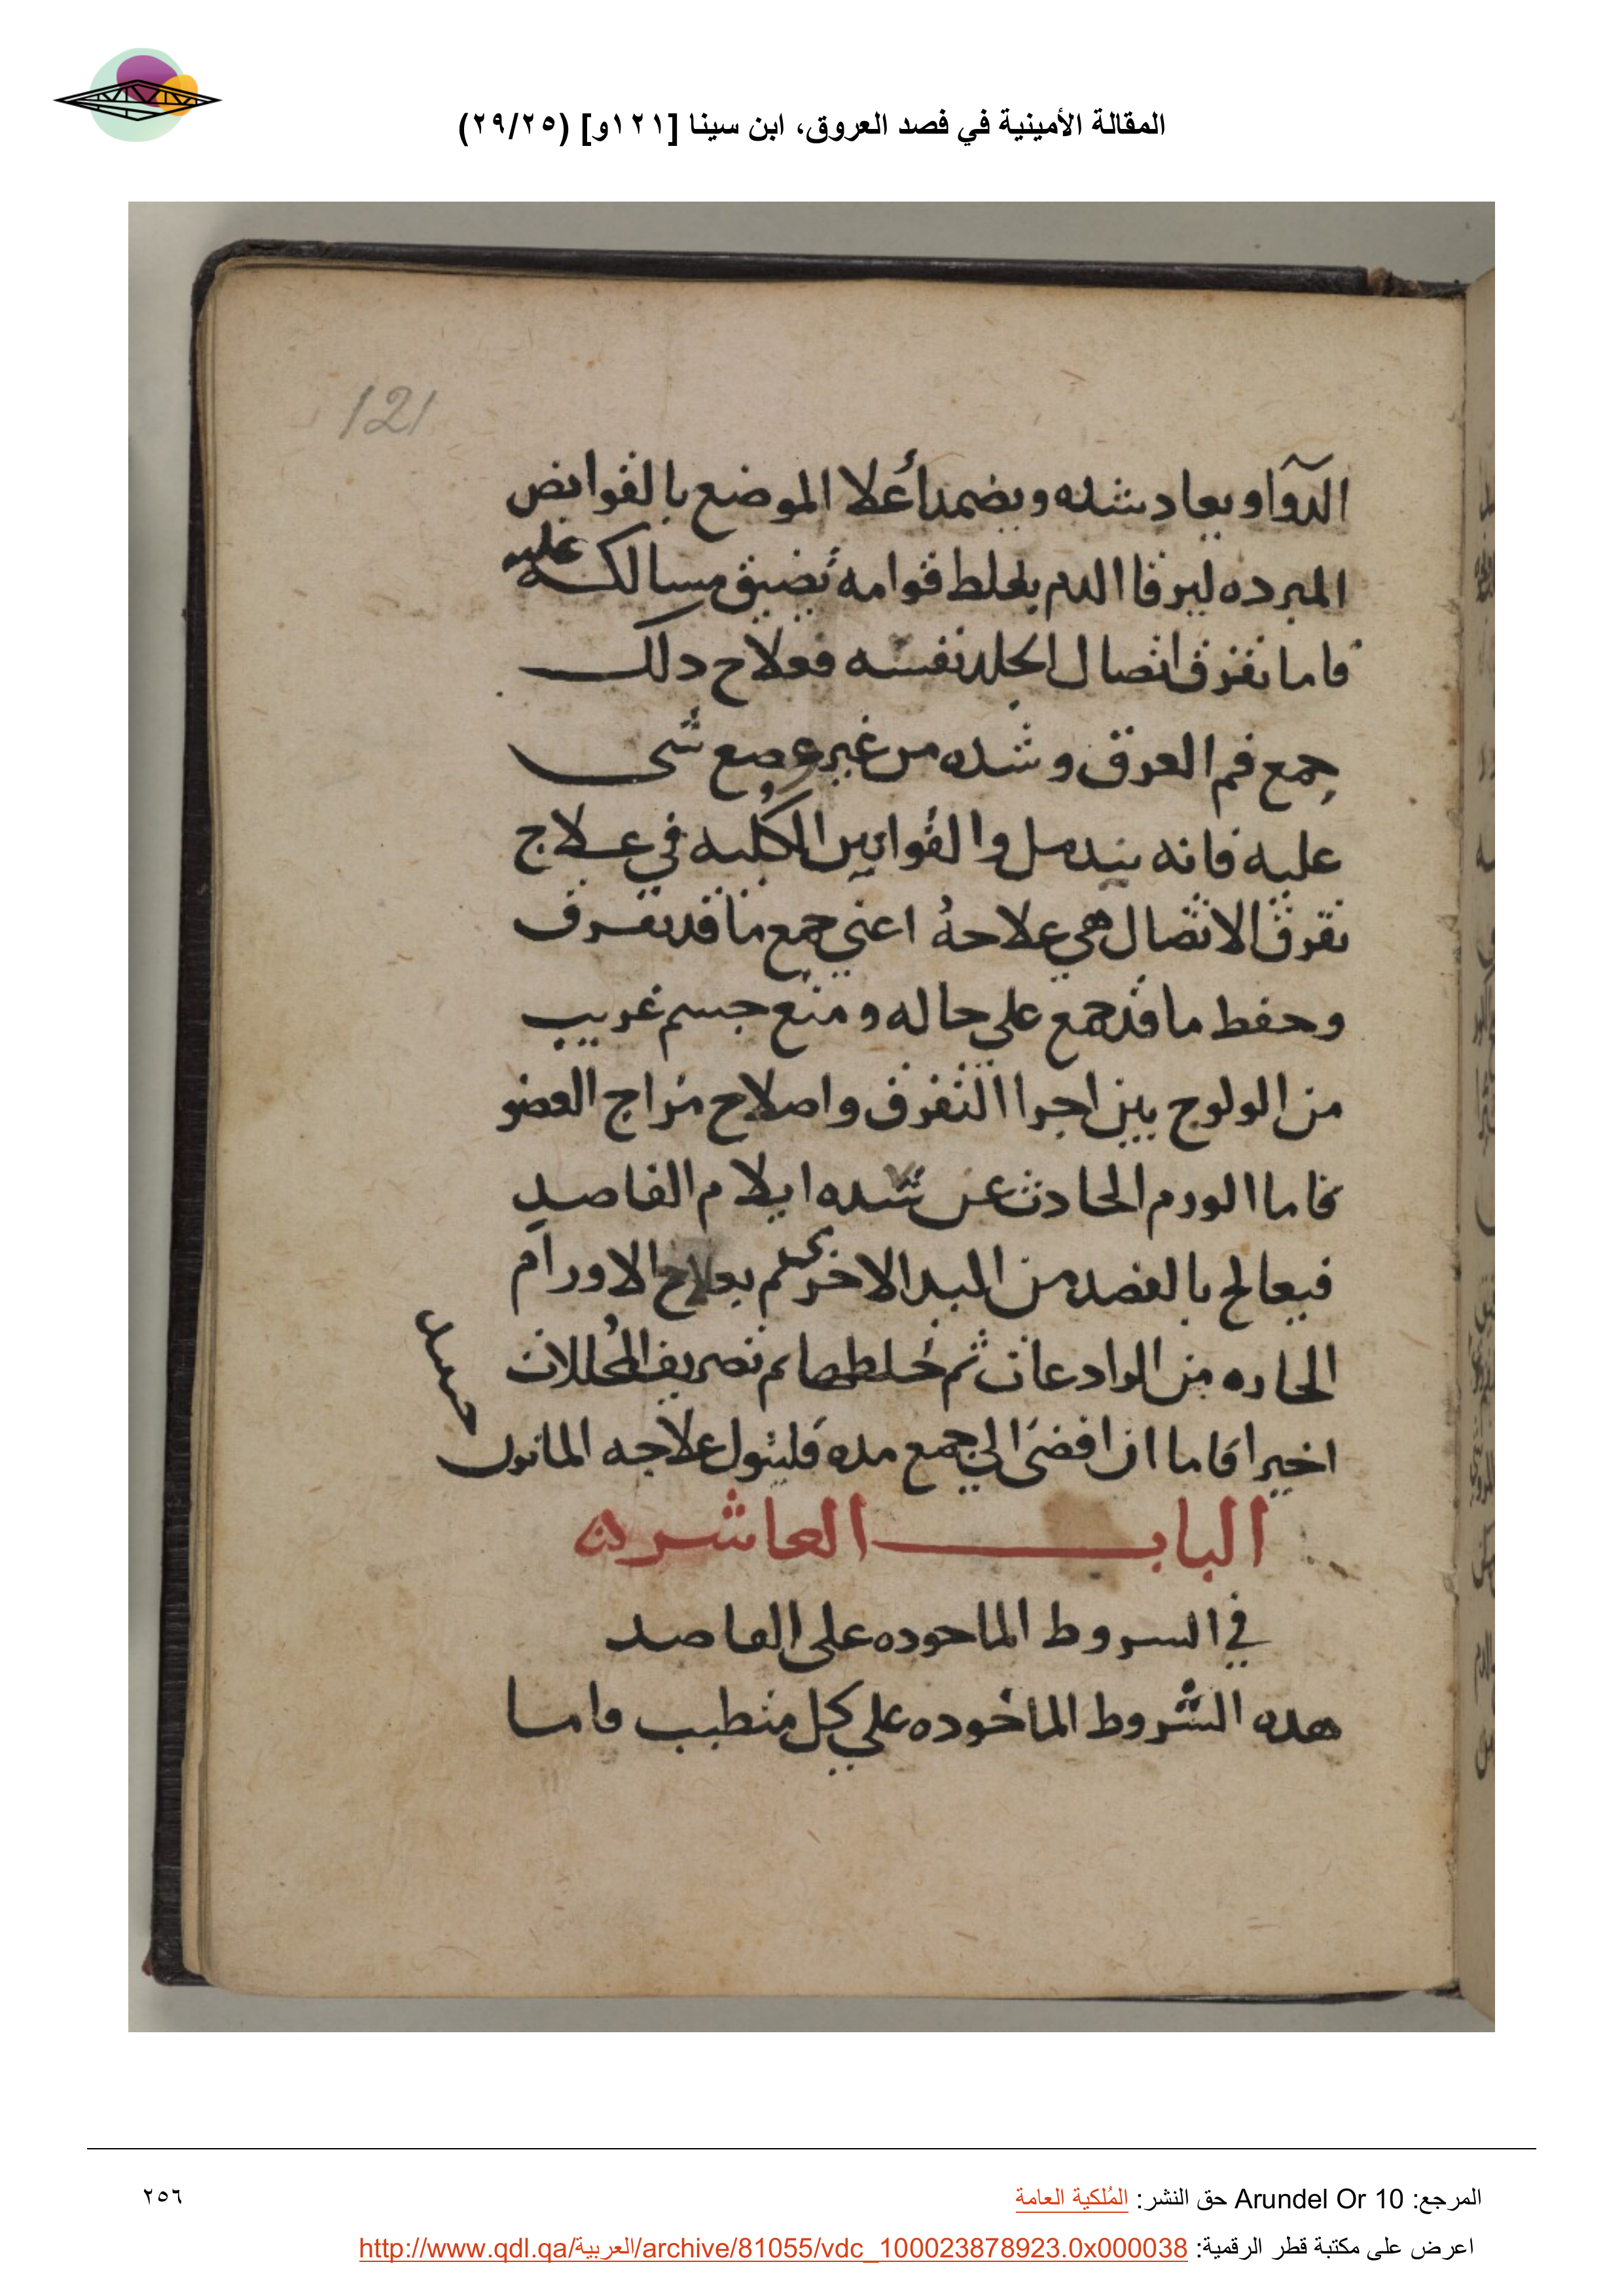 المقالة الأمينية في فصد العروق، ابن سينا [١٢١و] (٢٩/٢٥)
121
الدوآ ويعاد شده ويضمد أعلا الموضع بالقوابض
المبرده ليرقا الدم بغلظ قوامه تضيق مسالكه عليه
فاما تفرق اتصال الجلد نفسه فعلاح دلك
جمع فم العرق وشده من غير وضع شى
عليه فانه يندمل والقوانين الكليه في علاج
تفرق الاتصال هي علاحه اعني جمع ما قد تفرق
وحفظ ما قد جمع علي حاله ومنع جسم غريب
من الولوج بين اجرا التفرق واصلاح مزاج العضو
فاما الورم الحادث عن شده ايلام الفاصد
فيعالج بالفصد من اليد الاخري ثم بعلاج الاورام
الحاره من الرادعات ثم خلطها ثم تصريف المحللات
اخيرا فاما ان افضى الي جمع مده فليتول علاجه
البــاب العاشر
في السروط الماحوده على الفاصد
هده الشروط الماخوده علي كل متطبب واما
المرجع: Arundel Or 10 حق النشر: المُلكية العامة
٢٥٦
اعرض على مكتبة قطر الرقمية: http://www.qdl.qa/العربية/archive/81055/vdc_100023878923.0x000038